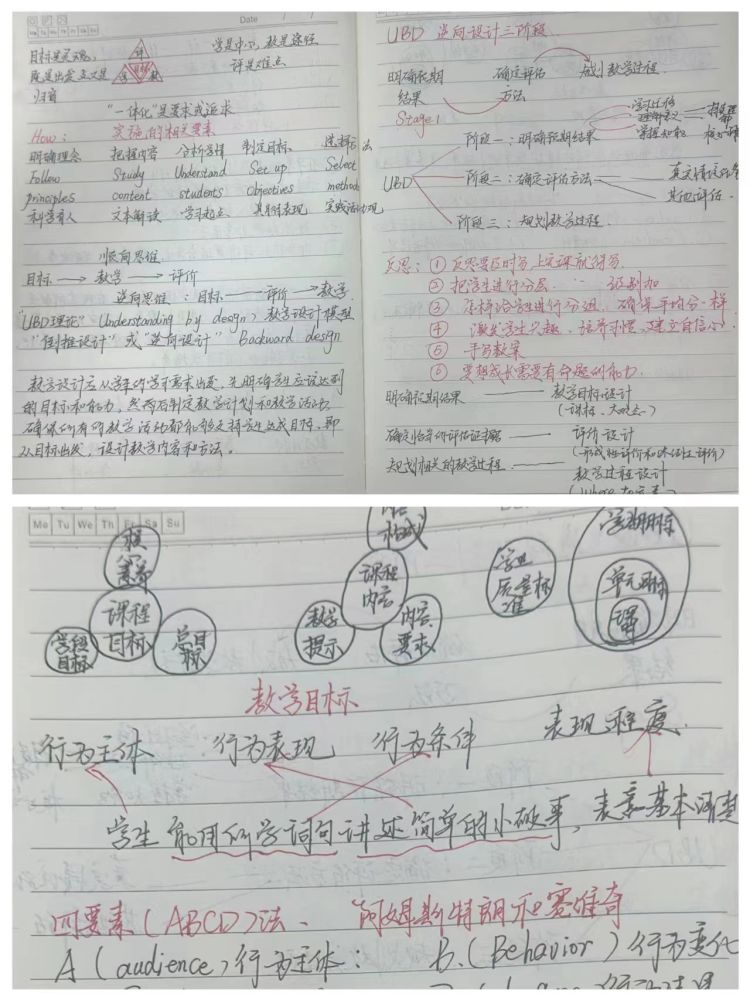 Date
目标是灵魂,
既是出发点又是
归宿
评
学 目标 教
学是中心, 教是途径
评是难点
"一体化"是要求或追求
How: 实施的相关要素
明确理念 把握内容 分析学情 制定目标 选择方法
Follow Study Understand Set up Select
principles content students objectives methods
科学育人 文本解读 学习起点 具体表现 实践活动
顺向思维
目标 → 教学 → 评价
逆向思维 : 目标 → 评价 → 教学
"UBD理论" Understanding by design, 教学设计模型
"倒推设计" 或 "逆向设计" Backward design
教学设计应从学生的学习需求出发, 先明确学生应该达到
的目标和能力, 然后制定教学计划和教学活动
确保所有的教学活动都能够支持学生达成目标, 即
从目标出发, 设计教学内容和方法。
UBD 逆向设计三阶段
明确预期 确定评估 规划教学过程
结果 方法
Stage1
学习迁移
理解意义
掌握知能
阶段一: 明确预期结果
UBD 阶段二: 确定评估方法
其他评估
阶段三: 规划教学过程
反思: ① 反思要及时
② 把学生进行分层
③ 怎样给学生进行分组, 确保平均分一样
④ 激发学生兴趣, 培养习惯, 建立自信心
⑤ 手写教案
⑥ 要想成长需要有命题的能力
明确预期结果 —— 教学目标设计
(课标、大观念)
确定恰当的评估证据 —— 评价设计
(形成性评价和终结性评价)
规划相关的教学过程 —— 教学过程设计
Mo Tu We Th Fr Sa Su
核心素养
课程目标
学段目标
总目标
课程内容
教学提示
内容要求
学业质量标准
学期目标
单元目标
课
教学目标
行为主体 行为表现 行为条件 表现程度
学生能用所学词句讲述简单的小故事, 表意基本清楚
四要素(ABCD)法、 "阿姆斯特朗和赛维奇
A (audience) 行为主体: B. (Behavior) 行为变化